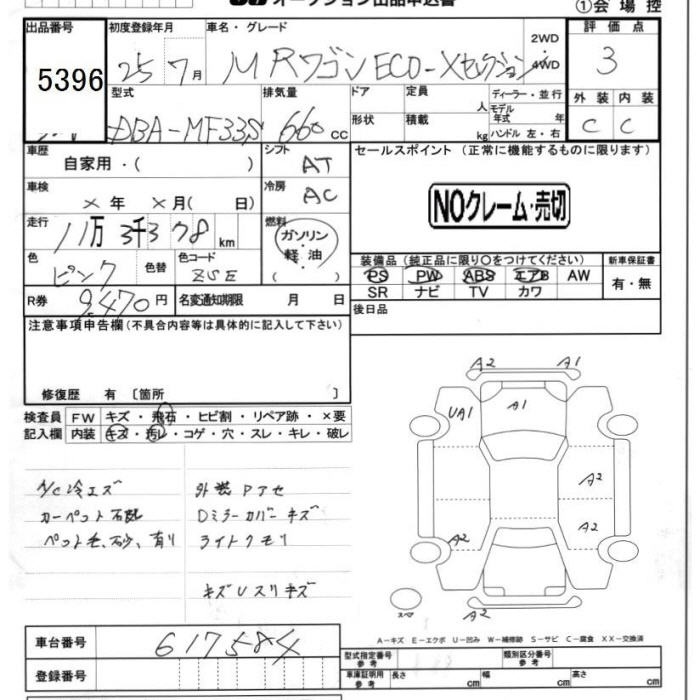 オークション出品申込書
①会場控
出品番号 初度登録年月 車名・グレード 2WD・4WD 評価点
5396 25 7月 MRワゴン ECO-Xセレクション 3
型式 排気量 ドア 定員 人 ディーラー・並行 外装 内装
DBA-MF33S 660cc 形状 積載 kg モデル年式 年 ハンドル 左・右 C C
車歴 自家用・( ) シフト AT セールスポイント (正常に機能するものに限ります)
車検 ×年 ×月( 日) 冷房 AC
NOクレーム・売切
走行 11万3千378km 燃料 ガソリン・軽油 ( )
色 ピンク 色替 色コード ZSE
装備品 (純正品に限り○をつけてください) 新車保証書
PS PW ABS エアB AW 有・無
SR ナビ TV カワ
R券 9.470円 名変通知期限 月 日
後日品
注意事項申告欄 (不具合内容等は具体的に記入して下さい)
修復歴 有 〔箇所 〕
検査員 FW キズ・飛石・ヒビ割・リペア跡・×要
記入欄 内装 キズ・汚レ・コゲ・穴・スレ・キレ・破レ
A2 A1
UA1 A1
A2
A2 A2
A2
スペア
A/C冷エズ 外装 アセ
カーペット
ペット毛、砂、有り
Dミラーカバー キズ
ライトクモリ
キズUスリキズ
A－キズ E－エクボ U－凹み W－補修跡 S－サビ C－腐食 XX－交換済
車台番号 617584
登録番号
型式指定番号 参考 類別区分番号 参考
車庫証明用 参考 長さ cm 幅 cm 高さ cm